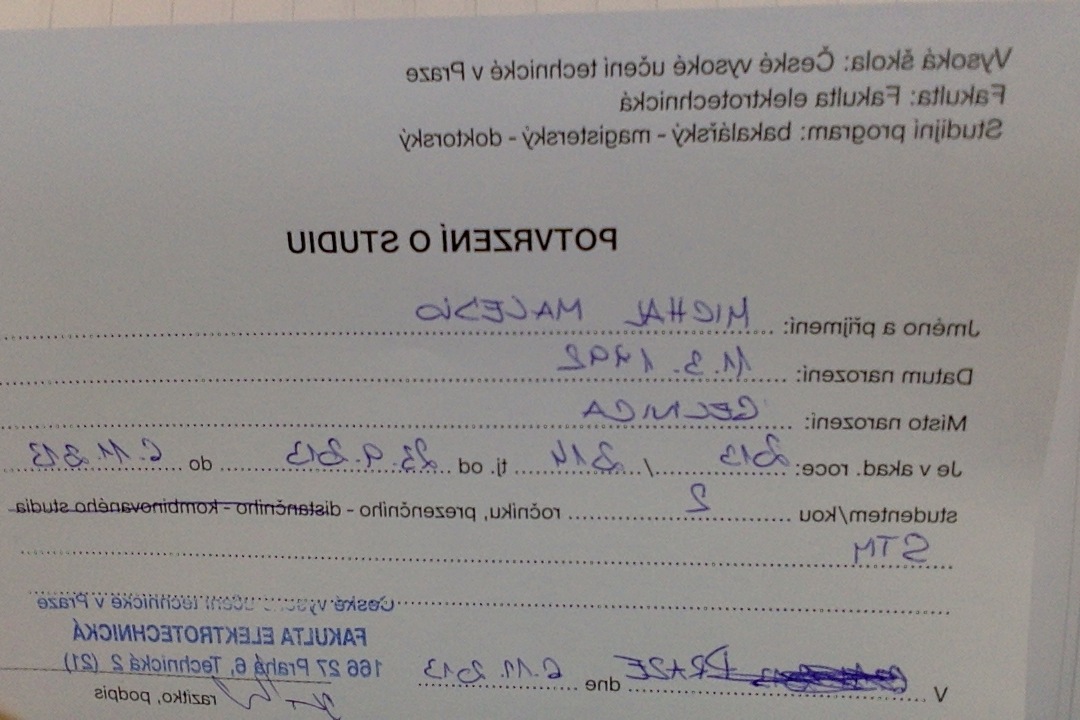 Vysoká škola: České vysoké učení technické v Praze
Fakulta: Fakulta elektrotechnická
Studijní program: bakalářský - magisterský - doktorský
POTVRZENÍ O STUDIU
Jméno a příjmení: MICHAL
Datum narození: 11. 3. 1992
Místo narození: GELNICA
Je v akad. roce: 2013 / 2014 tj. od 23. 9. 2013 do 6. 11. 2013
studentem/kou 2 ročníku, prezenčního - distančního - kombinovaného studia
STM
České vysoké učení technické v Praze
FAKULTA ELEKTROTECHNICKÁ
166 27 Praha 6, Technická 2 (21)
V PRAZE dne 6. 11. 2013
razítko, podpis